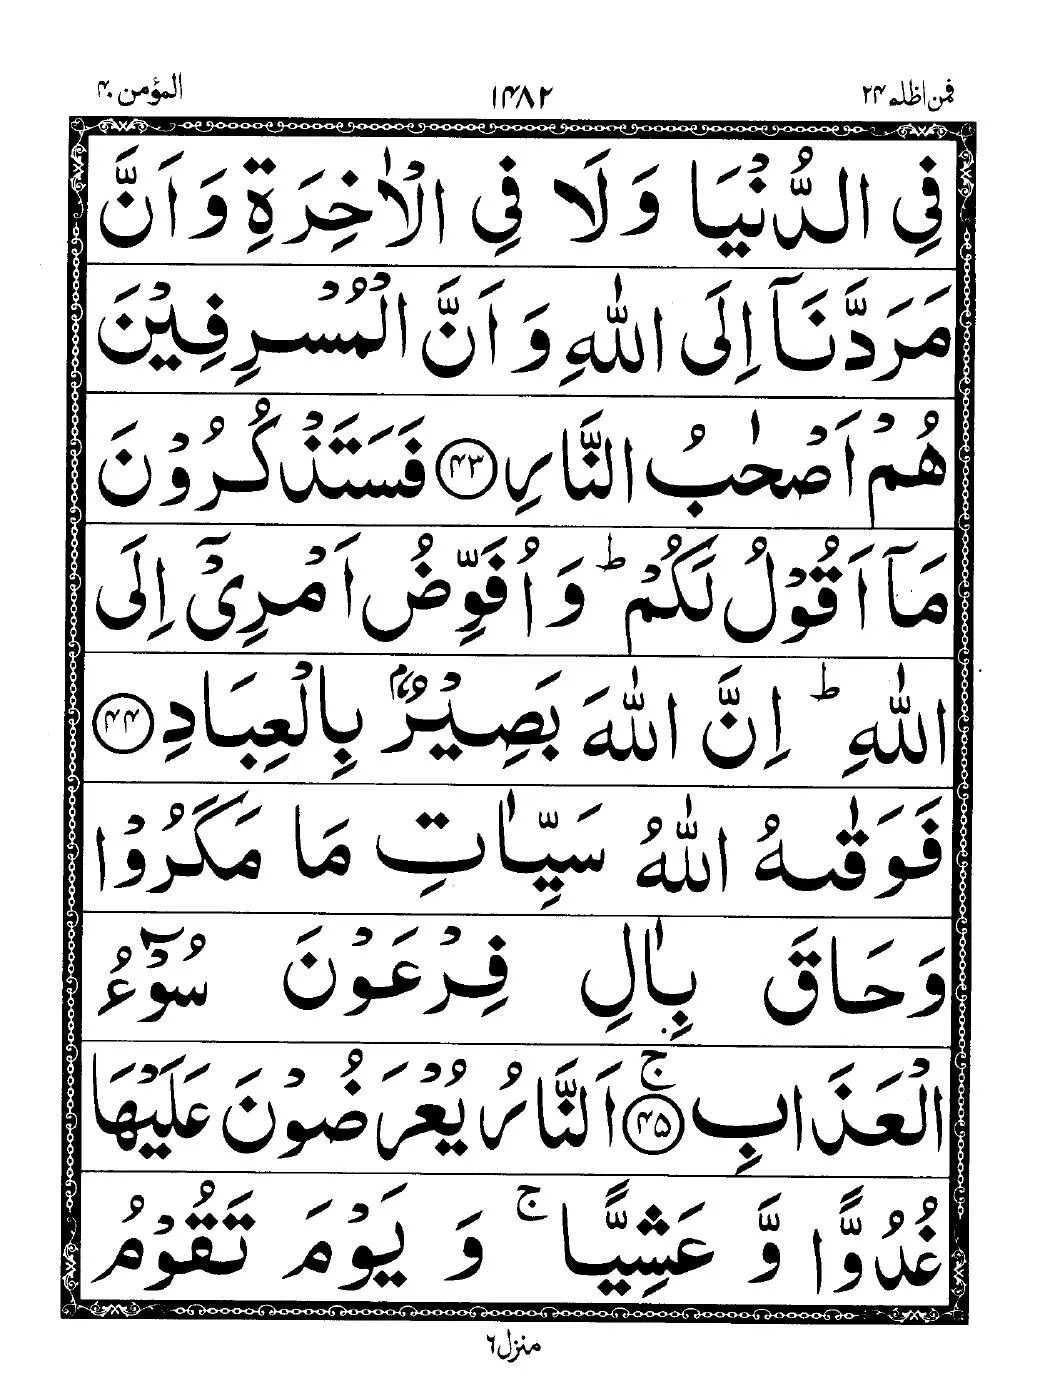 فمن اظلم ۲۴ ۱۴۸۲ المؤمن ۴۰
فِي الدُّنْيَا وَلَا فِي الْاٰخِرَةِ وَاَنَّ
مَرَدَّنَاۤ اِلَى اللّٰهِ وَاَنَّ الْمُسْرِفِيْنَ
هُمْ اَصْحٰبُ النَّارِ ﴿۴۳﴾ فَسَتَذْكُرُوْنَ
مَاۤ اَقُوْلُ لَكُمْ ؕ وَاُفَوِّضُ اَمْرِيْۤ اِلَى
اللّٰهِ ؕ اِنَّ اللّٰهَ بَصِيْرٌۢ بِالْعِبَادِ ﴿۴۴﴾
فَوَقٰىهُ اللّٰهُ سَيِّاٰتِ مَا مَكَرُوْا
وَحَاقَ بِاٰلِ فِرْعَوْنَ سُوْٓءُ
الْعَذَابِ ﴿۴۵﴾ۚ اَلنَّارُ يُعْرَضُوْنَ عَلَيْهَا
غُدُوًّا وَّ عَشِيًّا ۚ وَ يَوْمَ تَقُوْمُ
منزل ۶